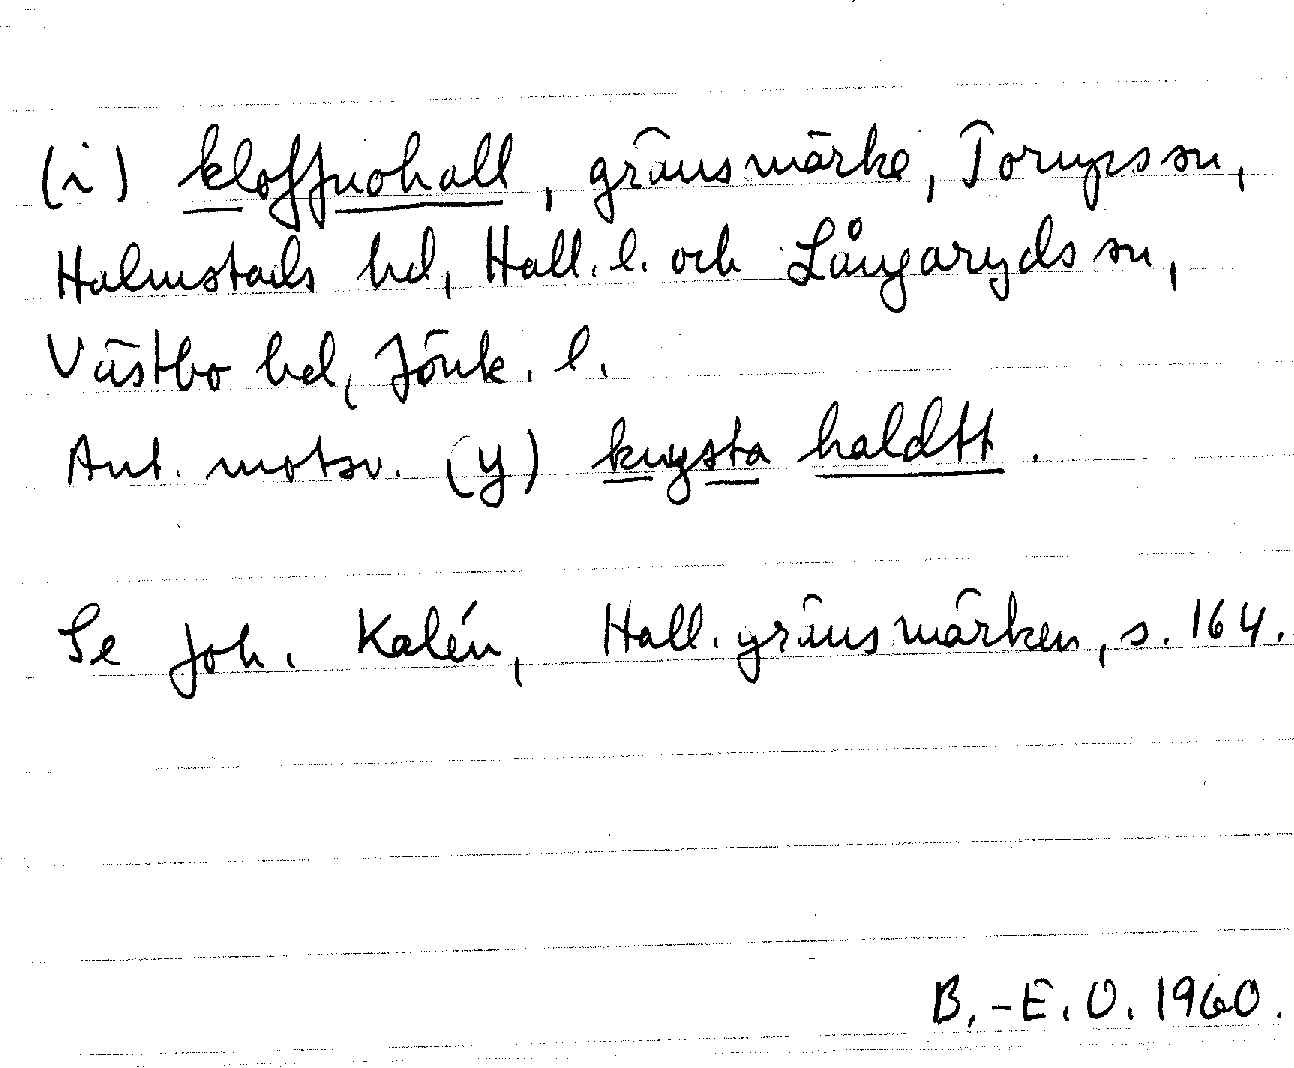 (i) kloffnohall, gränsmärke, Torups sn,
Halmstads hd, Hall. l. och Långaryds sn,
Västbo hd, Jönk. l.
Ant. motsv. (y) knysta haldtt.
Se Joh. Kalén, Hall. gränsmärken, s. 164.
B.-E. O. 1960.